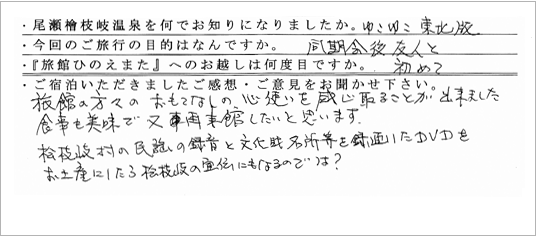 ・尾瀬檜枝岐温泉を何でお知りになりましたか。ゆこゆこ 東北版
・今回のご旅行の目的はなんですか。 同期会後友人と
・『旅館ひのえまた』へのお越しは何度目ですか。 初めて
・ご宿泊いただきましたご感想・ご意見をお聞かせ下さい。
旅館の方々のおもてなしの心使いを感じ取ることが出来ました
食事も美味で又再来館したいと思います.
桧枝岐村の民謡の録音と文化財名所等を録画したDVDを
お土産にしたら桧枝岐の宣伝にもなるのでは？